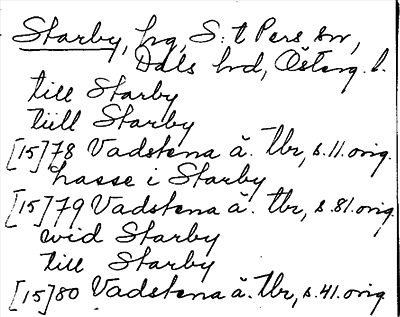 Starby, hg, S:t Pers sn,
Dals hd, Österg. l.
till Starby
tiill Starby
[15]78 Vadstena ä. tbr, s. 11. orig.
hasse i Starby
[15]79 Vadstena ä. tbr, s. 81. orig.
wid Starby
till Starby
[15]80 Vadstena ä. tbr, s. 41. orig